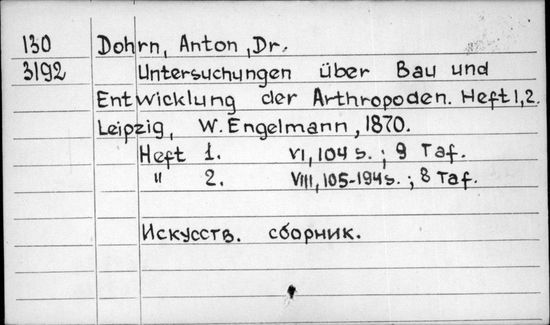 130 Dohrn, Anton, Dr.
3192 Untersuchungen über Bau und
Entwicklung der Arthropoden. Heft 1,2.
Leipzig, W. Engelmann, 1870.
Heft 1. VI, 104 s. ; 9 Taf.
" 2. VIII, 105-194 s. ; 8 Taf.
Искусств. сборник.